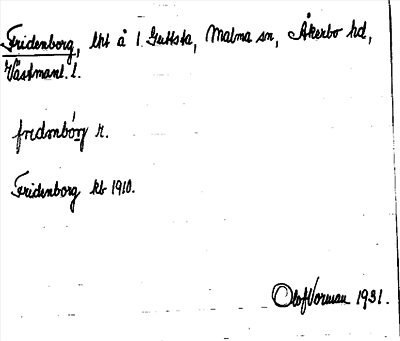 Fridenborg, lht å 1 Guttsta, Malma sn, Åkerbo hd,
Västmanl. l.
fredmbórg r.
Fridenborg kb 1910.
Olof Vorman 1931.